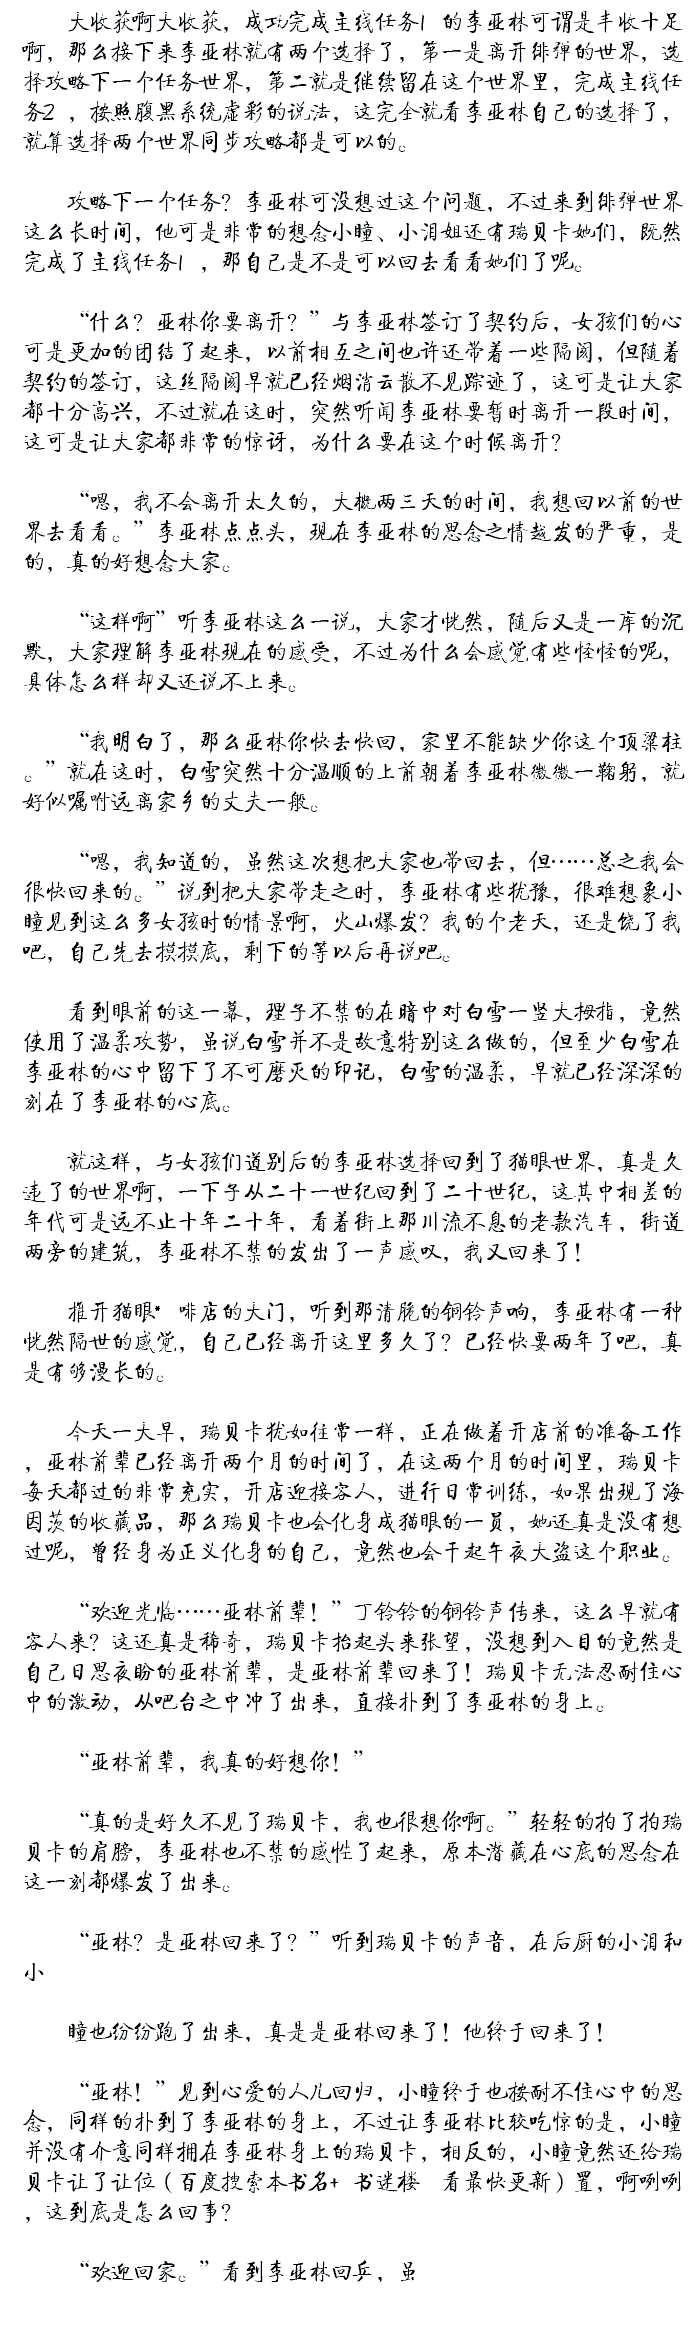 大收获啊大收获，成功完成主线任务1 的李亚林可谓是丰收十足
啊，那么接下来李亚林就有两个选择了，第一是离开绯弹的世界，选
择攻略下一个任务世界，第二就是继续留在这个世界里，完成主线任
务2 ，按照腹黑系统虚彩的说法，这完全就看李亚林自己的选择了，
就算选择两个世界同步攻略都是可以的。
攻略下一个任务？李亚林可没想过这个问题，不过来到绯弹世界
这么长时间，他可是非常的想念小瞳、小泪姐还有瑞贝卡她们，既然
完成了主线任务1 ，那自己是不是可以回去看看她们了呢。
“什么？亚林你要离开？”与李亚林签订了契约后，女孩们的心
可是更加的团结了起来，以前相互之间也许还带着一些隔阂，但随着
契约的签订，这丝隔阂早就已经烟消云散不见踪迹了，这可是让大家
都十分高兴，不过就在这时，突然听闻李亚林要暂时离开一段时间，
这可是让大家都非常的惊讶，为什么要在这个时候离开？
“嗯，我不会离开太久的，大概两三天的时间，我想回以前的世
界去看看。”李亚林点点头，现在李亚林的思念之情越发的严重，是
的，真的好想念大家。
“这样啊”听李亚林这么一说，大家才恍然，随后又是一库的沉
默，大家理解李亚林现在的感受，不过为什么会感觉有些怪怪的呢，
具体怎么样却又还说不上来。
“我明白了，那么亚林你快去快回，家里不能缺少你这个顶梁柱
。”就在这时，白雪突然十分温顺的上前朝着李亚林微微一鞠躬，就
好似嘱咐远离家乡的丈夫一般。
“嗯，我知道的，虽然这次想把大家也带回去，但……总之我会
很快回来的。”说到把大家带走之时，李亚林有些犹豫，很难想象小
瞳见到这么多女孩时的情景啊，火山爆发？我的个老天，还是饶了我
吧，自己先去摸摸底，剩下的等以后再说吧。
看到眼前的这一幕，理子不禁的在暗中对白雪一竖大拇指，竟然
使用了温柔攻势，虽说白雪并不是故意特别这么做的，但至少白雪在
李亚林的心中留下了不可磨灭的印记，白雪的温柔，早就已经深深的
刻在了李亚林的心底。
就这样，与女孩们道别后的李亚林选择回到了猫眼世界，真是久
违了的世界啊，一下子从二十一世纪回到了二十世纪，这其中相差的
年代可是远不止十年二十年，看着街上那川流不息的老款汽车，街道
两旁的建筑，李亚林不禁的发出了一声感叹，我又回来了！
推开猫眼* 啡店的大门，听到那清脆的铜铃声响，李亚林有一种
恍然隔世的感觉，自己已经离开这里多久了？已经快要两年了吧，真
是有够漫长的。
今天一大早，瑞贝卡犹如往常一样，正在做着开店前的准备工作
，亚林前辈已经离开两个月的时间了，在这两个月的时间里，瑞贝卡
每天都过的非常充实，开店迎接客人，进行日常训练，如果出现了海
因茨的收藏品，那么瑞贝卡也会化身成猫眼的一员，她还真是没有想
过呢，曾经身为正义化身的自己，竟然也会干起午夜大盗这个职业。
“欢迎光临……亚林前辈！”丁铃铃的铜铃声传来，这么早就有
客人来？这还真是稀奇，瑞贝卡抬起头来张望，没想到入目的竟然是
自己日思夜盼的亚林前辈，是亚林前辈回来了！瑞贝卡无法忍耐住心
中的激动，从吧台之中冲了出来，直接扑到了李亚林的身上。
“亚林前辈，我真的好想你！”
“真的是好久不见了瑞贝卡，我也很想你啊。”轻轻的拍了拍瑞
贝卡的肩膀，李亚林也不禁的感性了起来，原本潜藏在心底的思念在
这一刻都爆发了出来。
“亚林？是亚林回来了？”听到瑞贝卡的声音，在后厨的小泪和
小
瞳也纷纷跑了出来，真是是亚林回来了！他终于回来了！
“亚林！”见到心爱的人儿回归，小瞳终于也按耐不住心中的思
念，同样的扑到了李亚林的身上，不过让李亚林比较吃惊的是，小瞳
并没有介意同样拥在李亚林身上的瑞贝卡，相反的，小瞳竟然还给瑞
贝卡让了让位（百度搜索本书名+ 书迷楼 看最快更新）置，啊咧咧
，这到底是怎么回事？
“欢迎回家。”看到李亚林回乒，虽